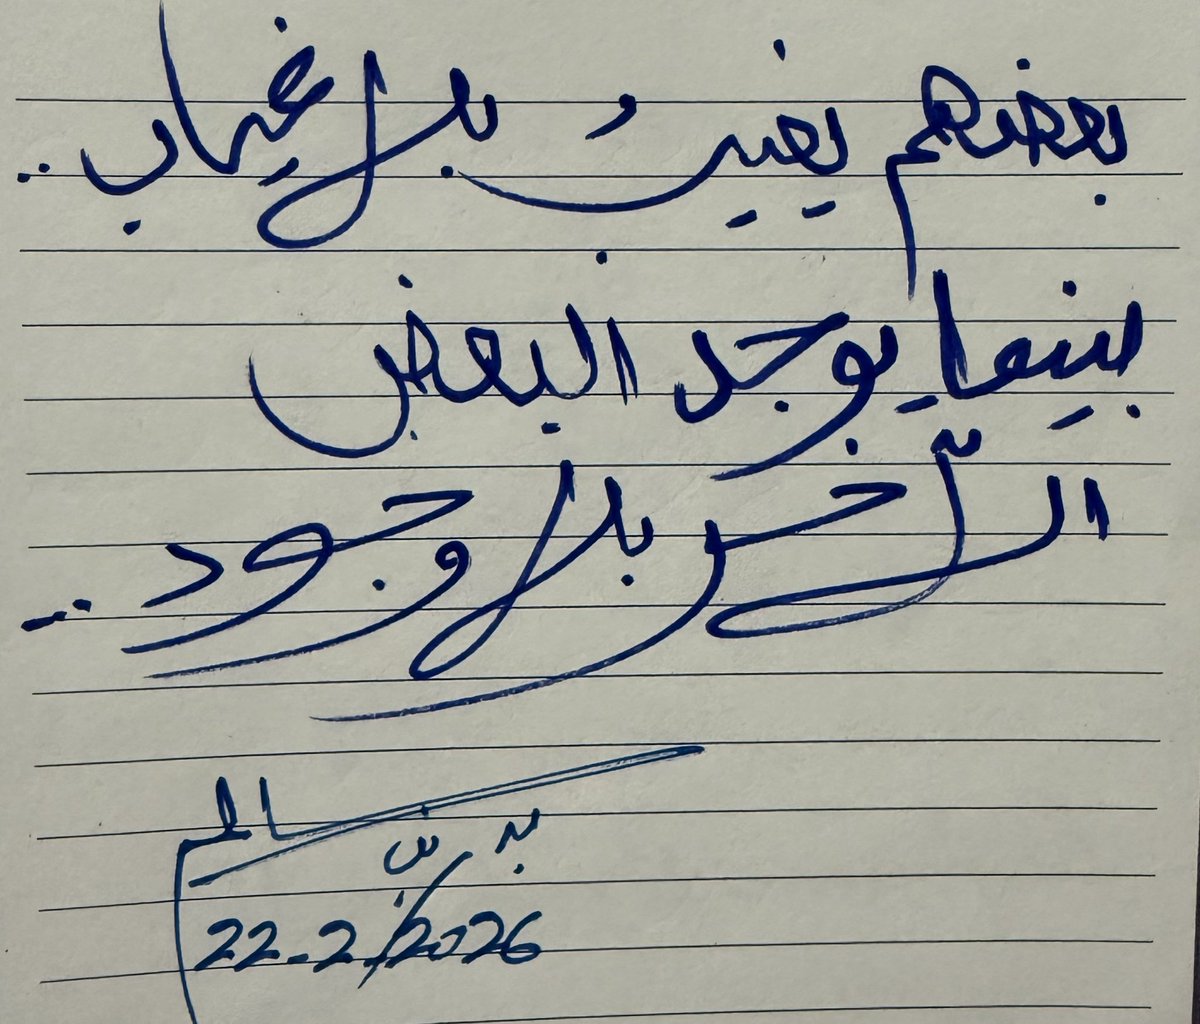 بعضهم يغيبُ بلا غياب ..
بينما يوجد البعض
الآخر بلا وجود ..
سالم
22-2/2026